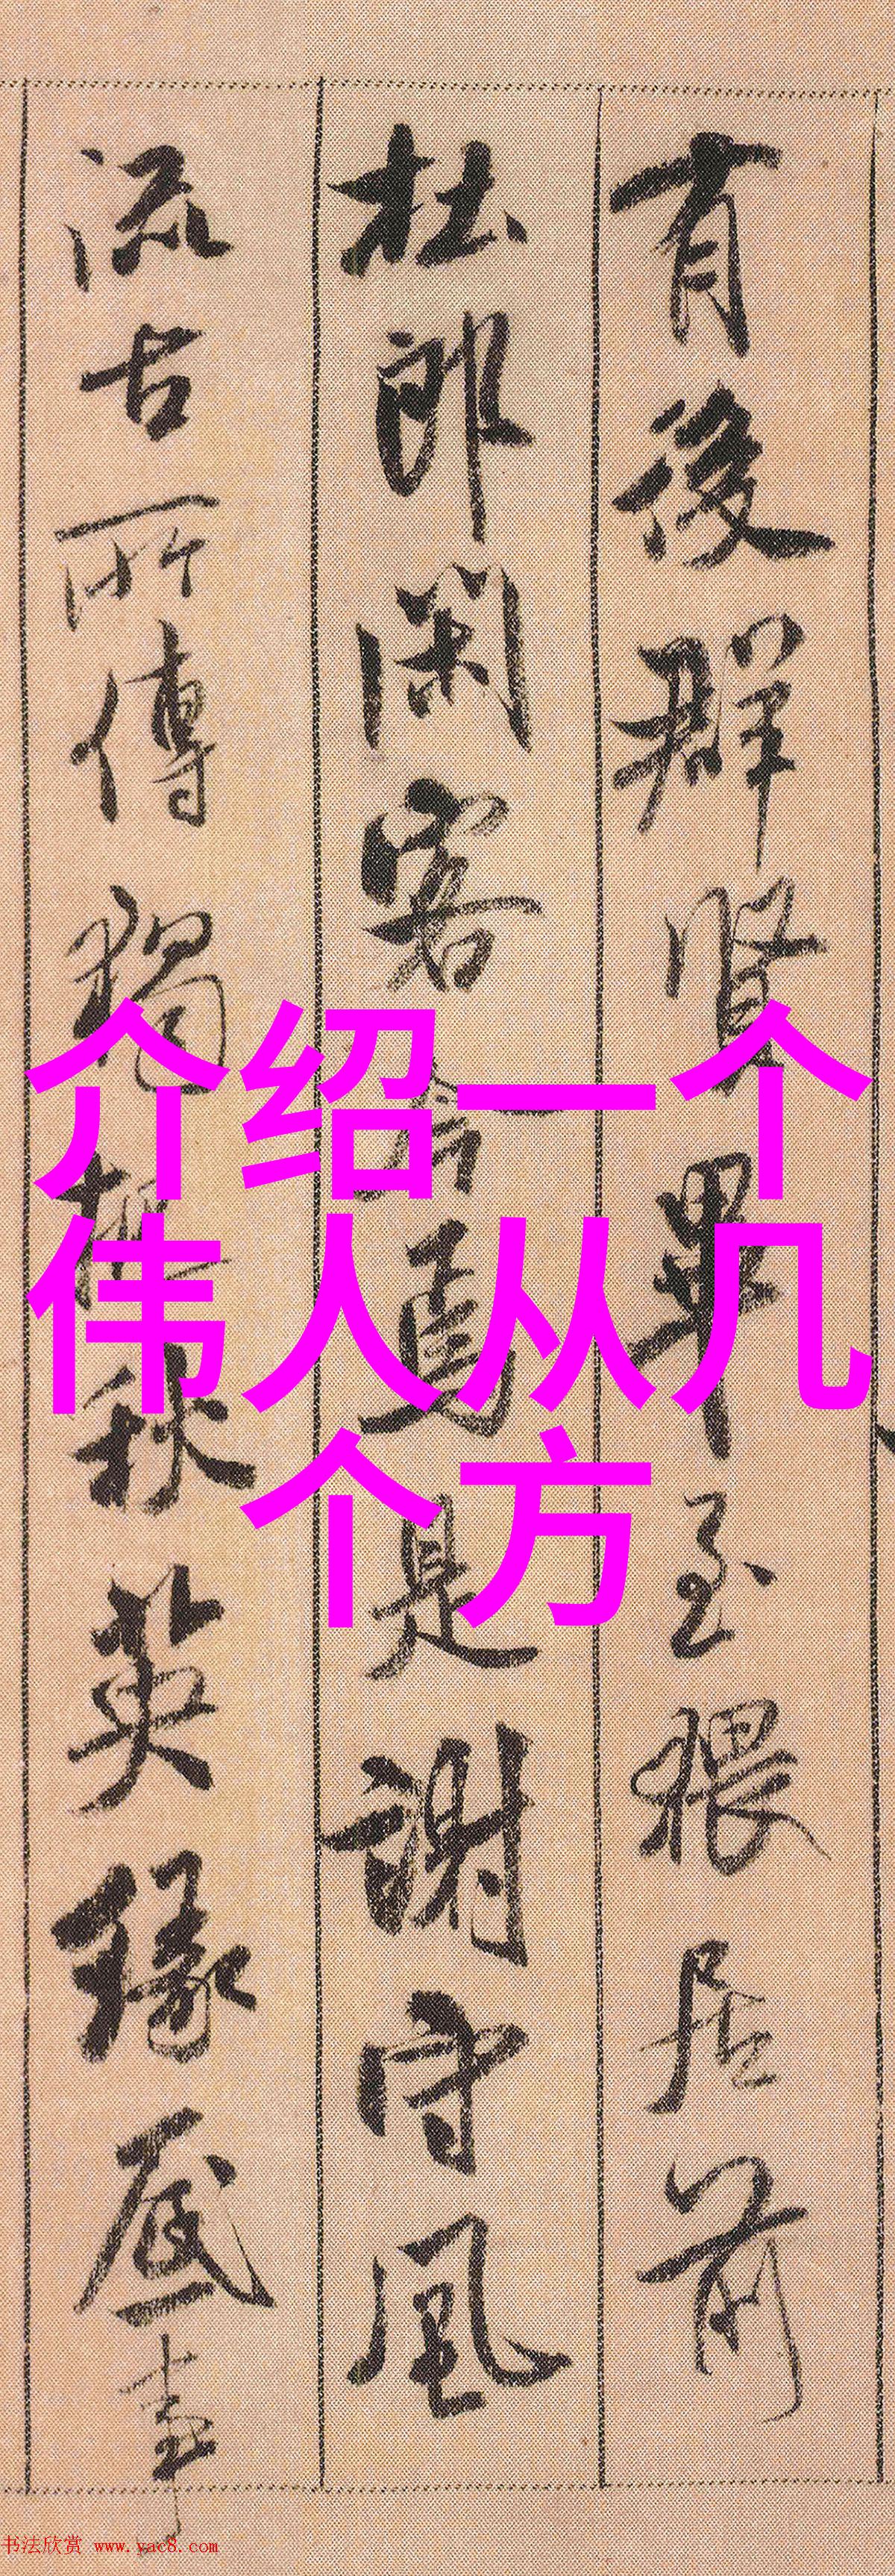 有後群賢畢至猥居前
杜郎閑客今焉是謝守風
流古所傳獨把秋英緣底事
介绍一个
伟人从几
个方
书法欣赏 www.yac8.com